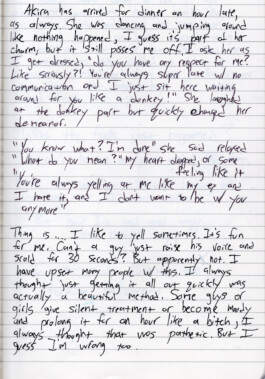 Akira has arrived for dinner an hour late,
as always. She was dancing and jumping around
like nothing happened, I guess it's part of her
charm, but it still pisses me off. I ask her as
I got dressed, "do you have any respect for me?
Like seriously?! You're always super late w/ no
communication and I just sit here waiting
around for you like a donkey!" She laughed
at the donkey part but quickly changed her
demeanor.
"You know what? I'm done" she said relaxed
"What do you mean?" my heart dropped, or some
feeling like it
"You're always yelling at me like my ex and
I hate it, and I don't want to be w you
anymore"
Thing is... I like to yell sometimes. It's fun
for me. Can't a guy just raise his voice and
scold for 30 seconds? But apparently not. I
have upset many people w/ this. I always
thought just getting it all out quickly was
actually a beautiful method. Some guys or
girls give silent treatment or become moody
and prolong it for an hour like a bitch, I
always thought that was pathetic. But I
guess I'm wrong too.